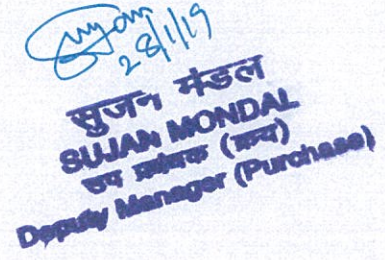 Sujan
28/1/19
सुजन मंडल
SUJAN MONDAL
उप प्रबंधक (क्रय)
Deputy Manager (Purchase)